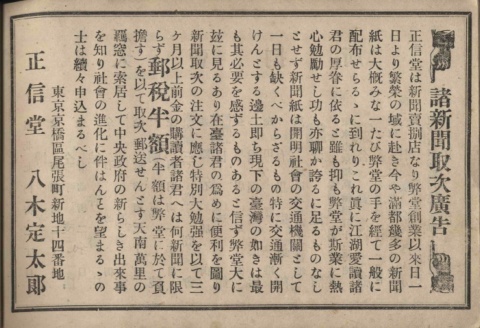 諸新聞取次廣告
正信堂は新聞賣捌店なり弊堂創業以來日一
日より繁榮の域に赴き今や滿都幾多の新聞
紙は大槪みな一たび弊堂の手を經て一般に
配布せらるゝに到れりこれ眞に江湖愛讀諸
君の厚眷に依ると雖も抑も弊堂が斯業に熱
心勉勵せし功も亦聊か誇るに足るものなし
とせず新聞紙は開明社會の交通機關として
一日も缺くべからざるもの特に交通漸く開
けんとする邊土即ち現下の臺灣の如きは最
も其必要を感ずるものあると信ず弊堂大に
玆に見るあり在臺諸君の爲めに便利を圖り
新聞取次の注文に應じ特別大勉强を以て三
ケ月以上前金の購讀者諸君へは何新聞に限
らず郵稅半額(半額は弊堂に於て負
擔す)を以て取次郵送せんとす天南萬里の
羈窓に索居して中央政府の新らしき出來事
を知り社會の進化に伴はんとを望まるゝの
士は續々申込まるべし
東京京橋區尾張町新地十四番地
正信堂 八木定太郞